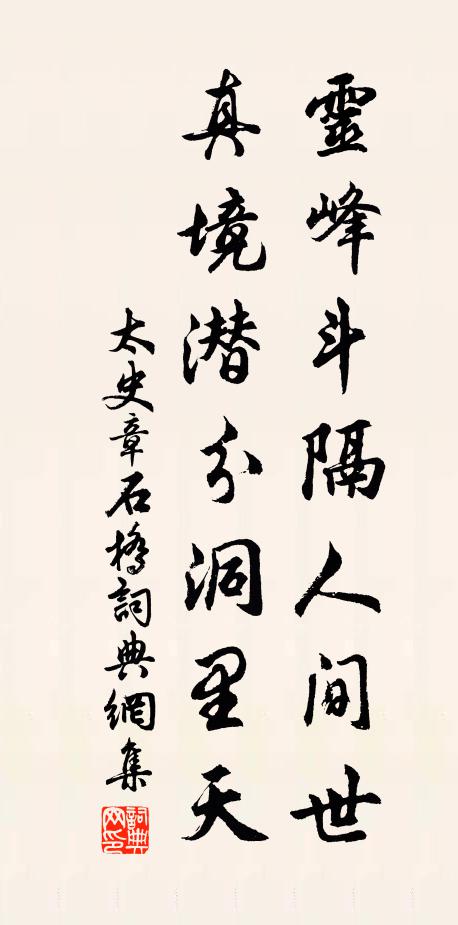 靈峰斗隔人间世
真境潜分洞里天
太史章石橋詞典網集
詞典網印